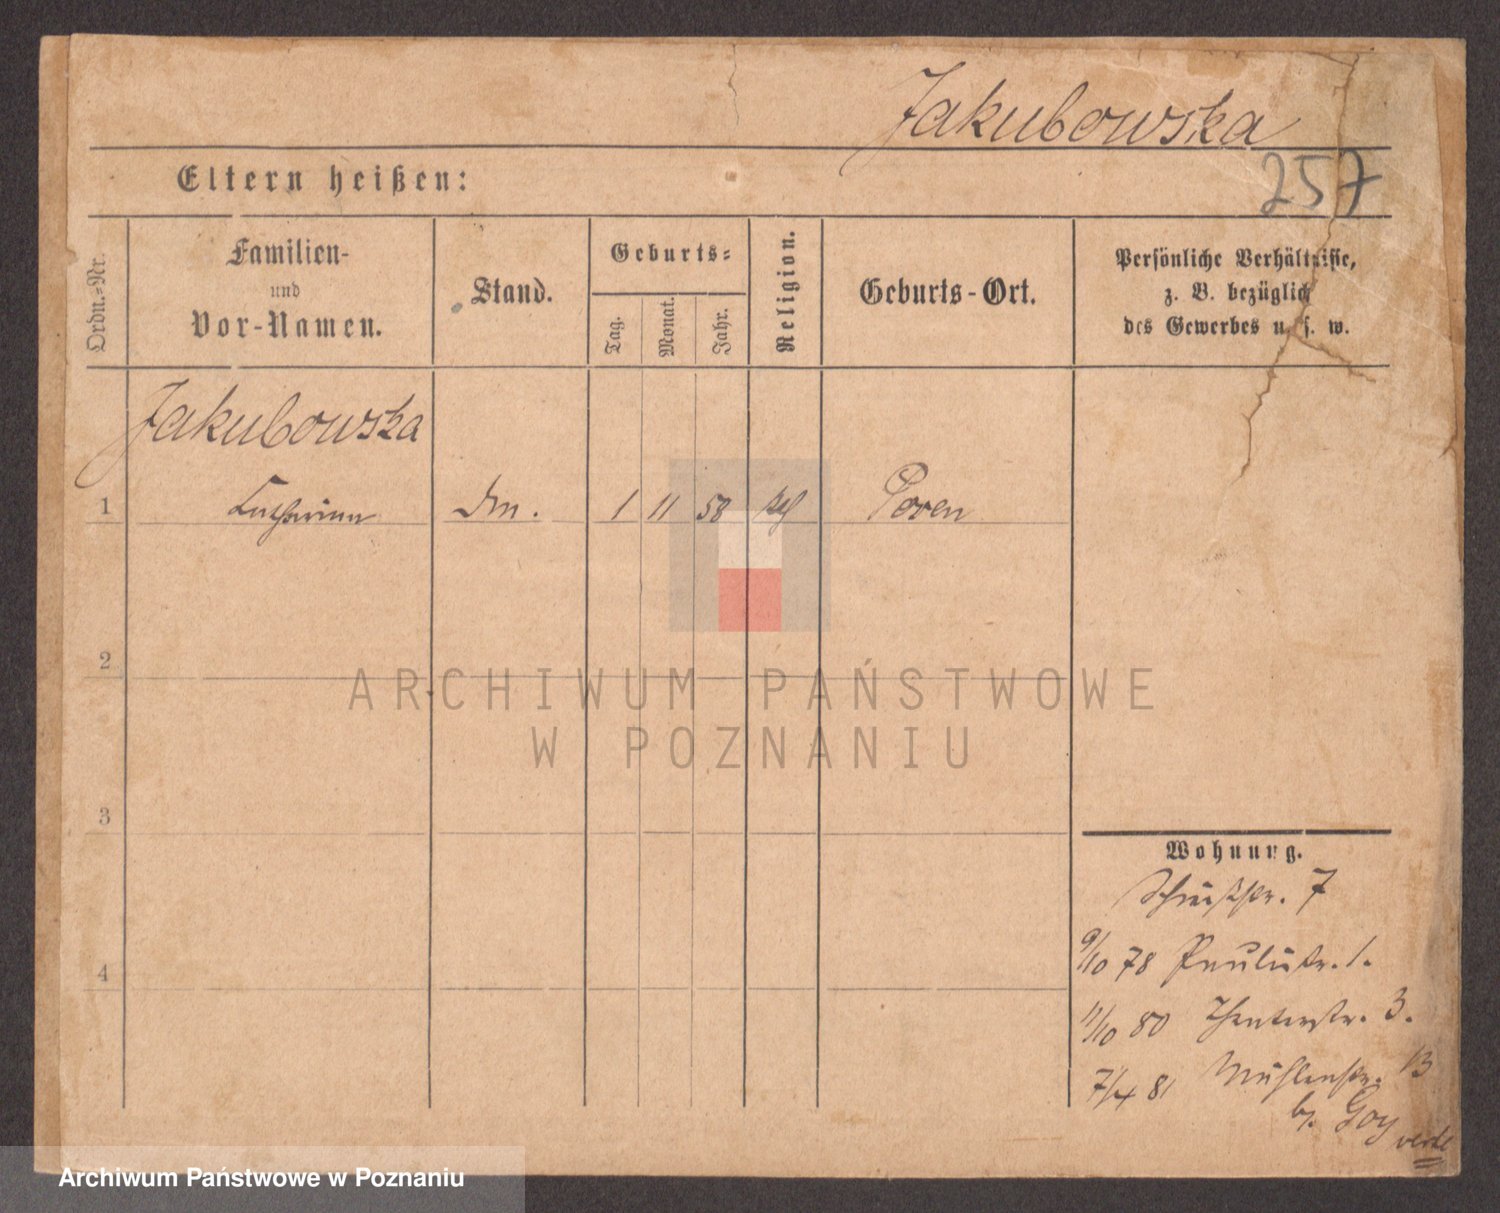 Jakubowska
257
Eltern heißen:
Ordn.-Nr.
Familien-
und
Vor-Namen.
Stand.
Geburts-
Tag.
Monat.
Jahr.
Religion.
Geburts-Ort.
Persönliche Verhältnisse,
z. B. bezüglich
des Gewerbes u. s. w.
Jakubowska
1 Catharina 1 11 58 Posen
2
3
4
ARCHIWUM PAŃSTWOWE
W POZNANIU
Wohnung.
Schießstr. 7
9/10 78 Paulistr. 1.
11/10 80 Theaterstr. 3.
7/4 81 Mühlenstr. 13
b. Goy
verte
Archiwum Państwowe w Poznaniu